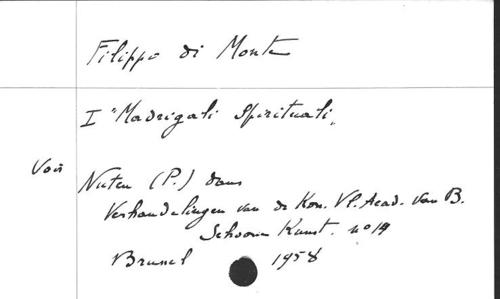 Filippo di Monte
I "Madrigali Spirituali"
Voir Nuten (P.) dans
Verhandelingen van de Kon. Vl. Acad. van B.
Schoone Kunst. no 14
Brussel 1958